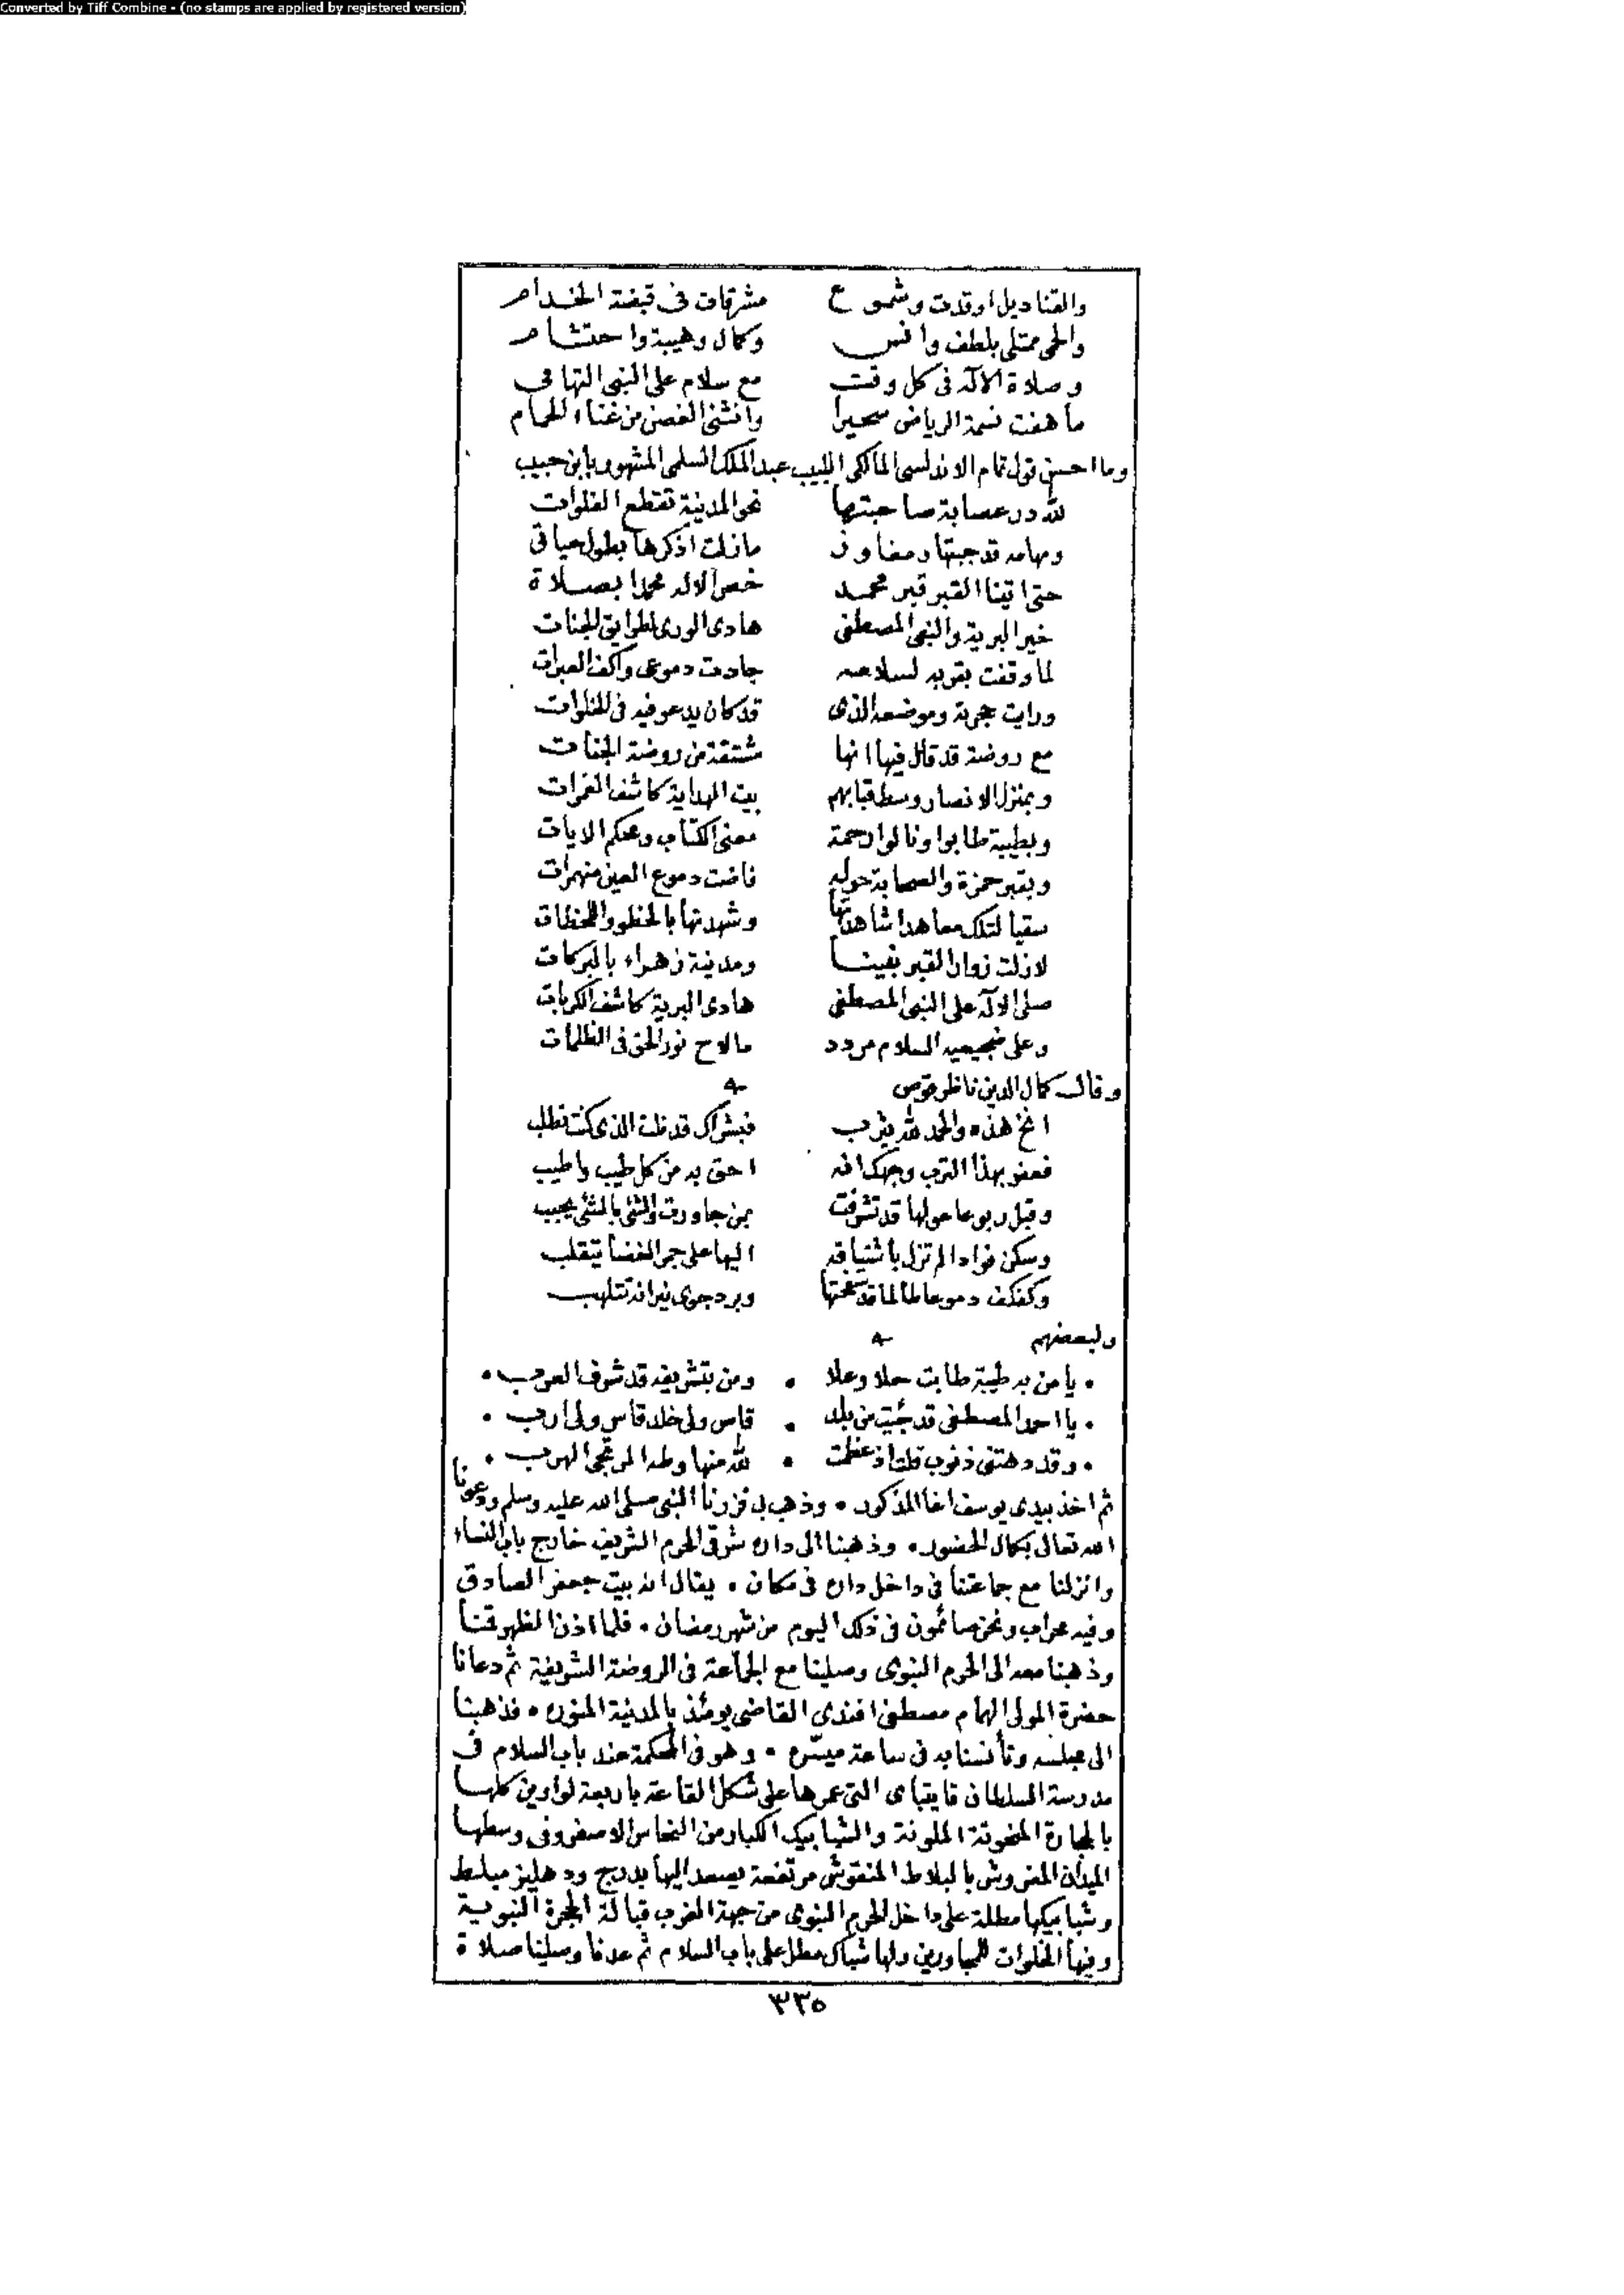 Converted by Tiff Combine - (no stamps are applied by registered version)
والقناديل اوقدت وشموع مشرقات فى قبضة الخدام
والحى ممتلى بلطف وانس وكمال وهيبة واحتشام
وصلاة الاله فى كل وقت مع سلام على النبى التهامى
ما هفت نسمة الرياض سحيرا وانثنى الغصن من غناء الحمام
وما احسن قول تمام الاندلسى المالكى اللبيب عبد الملك السلمى المشهور بابن حبيب
لله در عصابة صاحبتها نحو المدينة تقطع الفلوات
ومهامه قد جبتها ومفاوز مازلت اذكرها بطول حياتى
حتى اتينا القبر قبر محمد خص الاله محمدا بصلاة
خير البرية والنبى المصطفى هادى الورى لطرايق الجنات
لما وقفت بقربه لسلامه جادت دموعى واكف العبرات
ورايت حجرته وموضعه الذى قد كان يدعو فيه فى الخلوات
مع روضة قد قال فيها انها مشتقة من روضة الجنات
وبمنزل الانصار وسط قبابهم بيت الهداية كاشف الغمرات
وبطيبة طابوا ونالوا رحمة معنى الكتاب ومحكم الايات
وبقبر حمزة والصحابة حوله فاضت دموع العين منهمرات
سقيا لتلك معاهدا شاهدتها وشهدتها بالخطو واللحظات
لازلت زوار القبر نبينا ومدينة زهراء بالبركات
صلى الاله على النبى المصطفى هادى البرية كاشف الكربات
وعلى ضجيعيه السلام مردد ما لاح نور الحق فى الظلمات
وقال كمال الدين ناظر قوص
انخ هذه والحمد لله يثرب فبشراك قد نلت الذى كنت تطلب
فعفر بهذا الترب وجهك انه احق به من كل طيب واطيب
وقبل ربوعا حولها قد تشرفت بمن جاورت والشئ بالشئ يحبب
وسكن فوادا لم تزل باشتياقه اليها على جمر الغضا يتقلب
وكفكف دموعا طالما قد سفحتها وبرد جوى نيرانه تتلهب
ولبعضهم
يا من به طيبة طابت حلا وعلا • ومن بتشريفه قد شرف العرب •
يا احمد المصطفى قد جئت من بلد • قاس ولى خلد قاس ولى ارب •
وقد دهتنى ذنوب قلت اذ عظمت • لله منها وطه المرتجى الهرب •
ثم اخذ بيدى يوسف اغا المذكور • وذهب بى فزرنا النبى صلى الله عليه وسلم ودعونا
الله تعالى بكمال الحضور • وذهبنا الى داره شرقى الحرم الشريف خارج باب النساء
وانزلنا مع جماعتنا فى داخل داره فى مكان • يقال انه بيت جعفر الصادق
وفيه محراب ونحن صائمون فى ذلك اليوم من شهر رمضان • فلما اذن الظهر قمنا
وذهبنا معه الى الحرم النبوى وصلينا مع الجماعة فى الروضة الشريفة ثم دعانا
حضرة المولى الهمام مصطفى افندى القاضى يومئذ بالمدينة المنوره • فذهبنا
الى مجلسه وتأنسنا به فى ساعة ميسره • وهو فى المحكمة عند باب السلام فى
مدرسة السلطان قايتباى التى عمرها على شكل القاعة باربعة لواوين كلها
بالحجارة المنحوتة الملونة والشبابيك الكبار من النحاس الاصفر وفى وسطها
الميدان المفروش بالبلاط المنقوش مرتفعة يصعد اليها بدرج ودهليز مبلط
وشبابيكها مطلة على داخل الحرم النبوى من جهة المغرب قبالة الحجرة النبوية
وفيها الخلوات للمجاورين ولها شباك مطل على باب السلام ثم عدنا وصلينا صلاة
٣٣٥